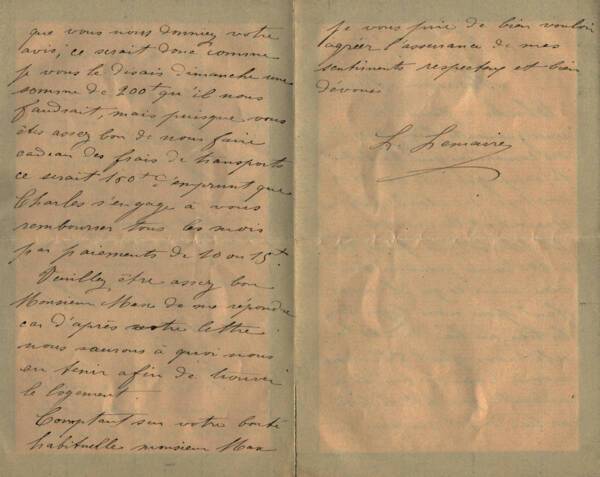 que vous nous donniez votre
avis, ce serait donc comme
je vous le disais dimanche une
somme de 200f qu'il nous
faudrait, mais puisque vous
êtes assez bon de nous faire
cadeau des frais de transports
ce serait 150f d'emprunt que
Charles s'engage à vous
rembourser tous les mois
par paiements de 10 ou 15f.
Veuillez être assez bon
Monsieur Max de me répondre
car d'après votre lettre
nous saurons à quoi nous
en tenir afin de trouver
le logement.
Comptant sur votre bonté
habituelle monsieur Max
je vous prie de bien vouloir
agréer l'assurance de mes
sentiments respectueux et bien
dévoués
L. Lemaire